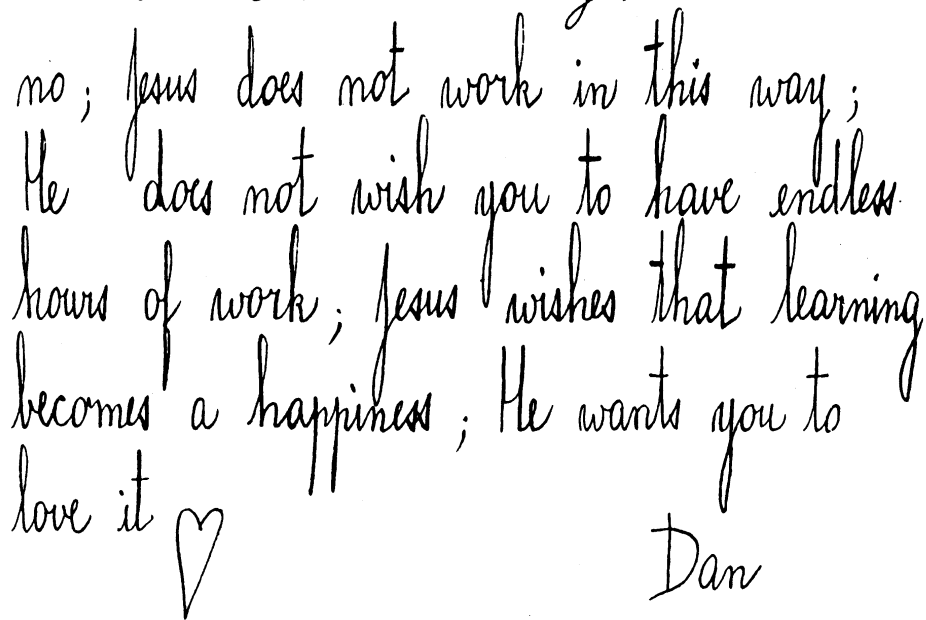 no; Jesus does not work in this way;
He does not wish you to have endless
hours of work; Jesus wishes that learning
becomes a happiness; He wants you to
love it ♡
Dan